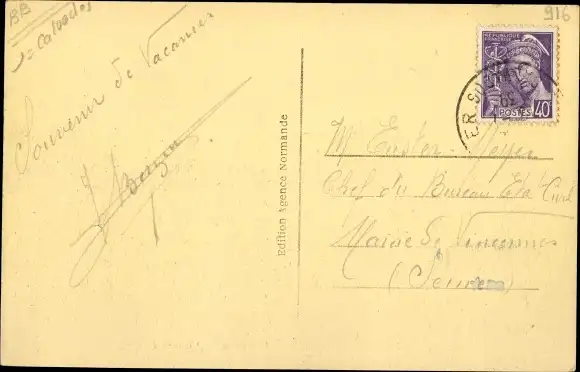 BB
= Calvados
916
Souvenir de Vacances
Edition Agence Normande
REPUBLIQUE FRANCAISE
POSTES 40
ER SU
M Meyer
Chef du Bureau Eta Civil
Mairie de Vincennes
(Seine)